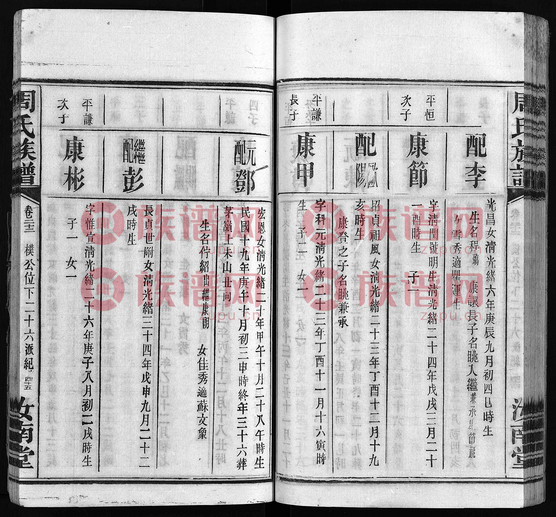 周氏族譜
汝南堂
配李
光昌女清光緒六年庚辰九月初四巳時生
平恒次子
康節
字清明號明生清光緒二十四年戊戌三月二十
一酉時生 子一
配歐陽
紹貞祖風女清光緒二十三年丁酉十二月十九
亥時生
康吾之子名晀兼承
平謙長子
康甲
字科元清光緒二十三年丁酉十一月十六寅時
生 子二 女一
四子
元配鄧
年甲午十月二十八午時生
民國十九年庚午十月初三申時終年三十六葬
茅嶺上未山丑向
女佳秀適蘇文彙
繼配彭
長貞世嗣女清光緒三十四年戊申九月二十二
戌時生
平謙次子
康彬
字惟萱清光緒二十六年庚子八月初二戌時生
子一 女一
周氏族譜
卷三
樸公位下二十六派紀
汝南堂
族谱网
族谱网
族谱网
族谱网